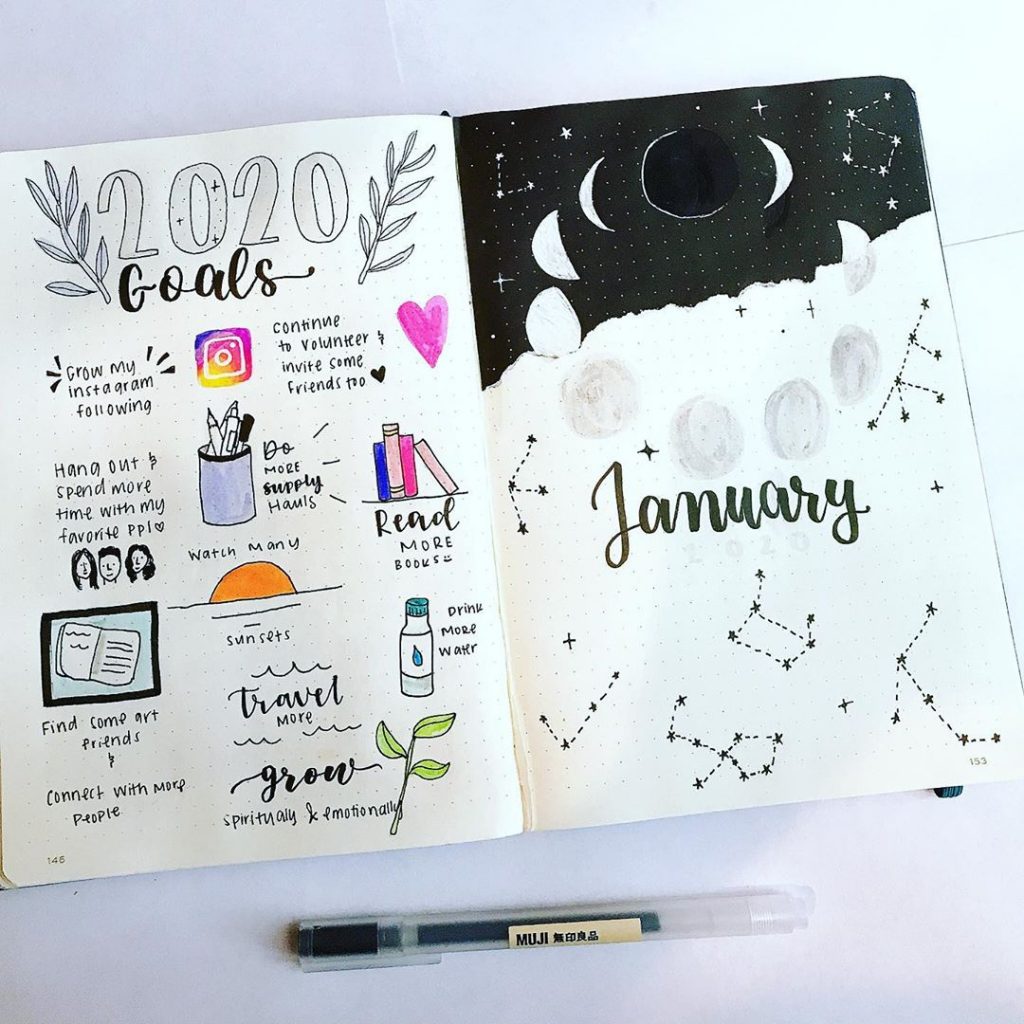 2020
Goals
Grow my
instagram
following
Continue
to volunteer &
invite some
friends too
Hang out &
spend more
time with my
favorite ppl
Do
more
supply
hauls
Read
more
books
Watch many
sunsets
Drink
more
water
Find some art
friends
&
Connect with more
people
travel
more
grow
spiritually & emotionally
146
January
2020
153
MUJI 無印良品